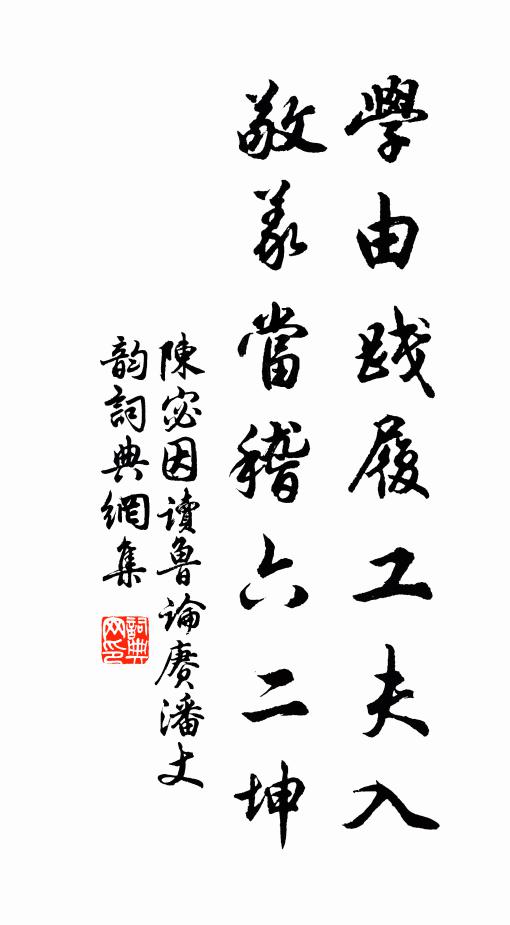 學由踐履工夫入
敬義當稽六二坤
陳宓因讀魯論賡潘丈
韵詞典網集
詞典網印